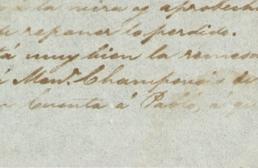 a la mira ag aprobech
de reponer lo perdido.
tá muy bien la remesa
á Mond. Champon
Cuenta á Pablo, á